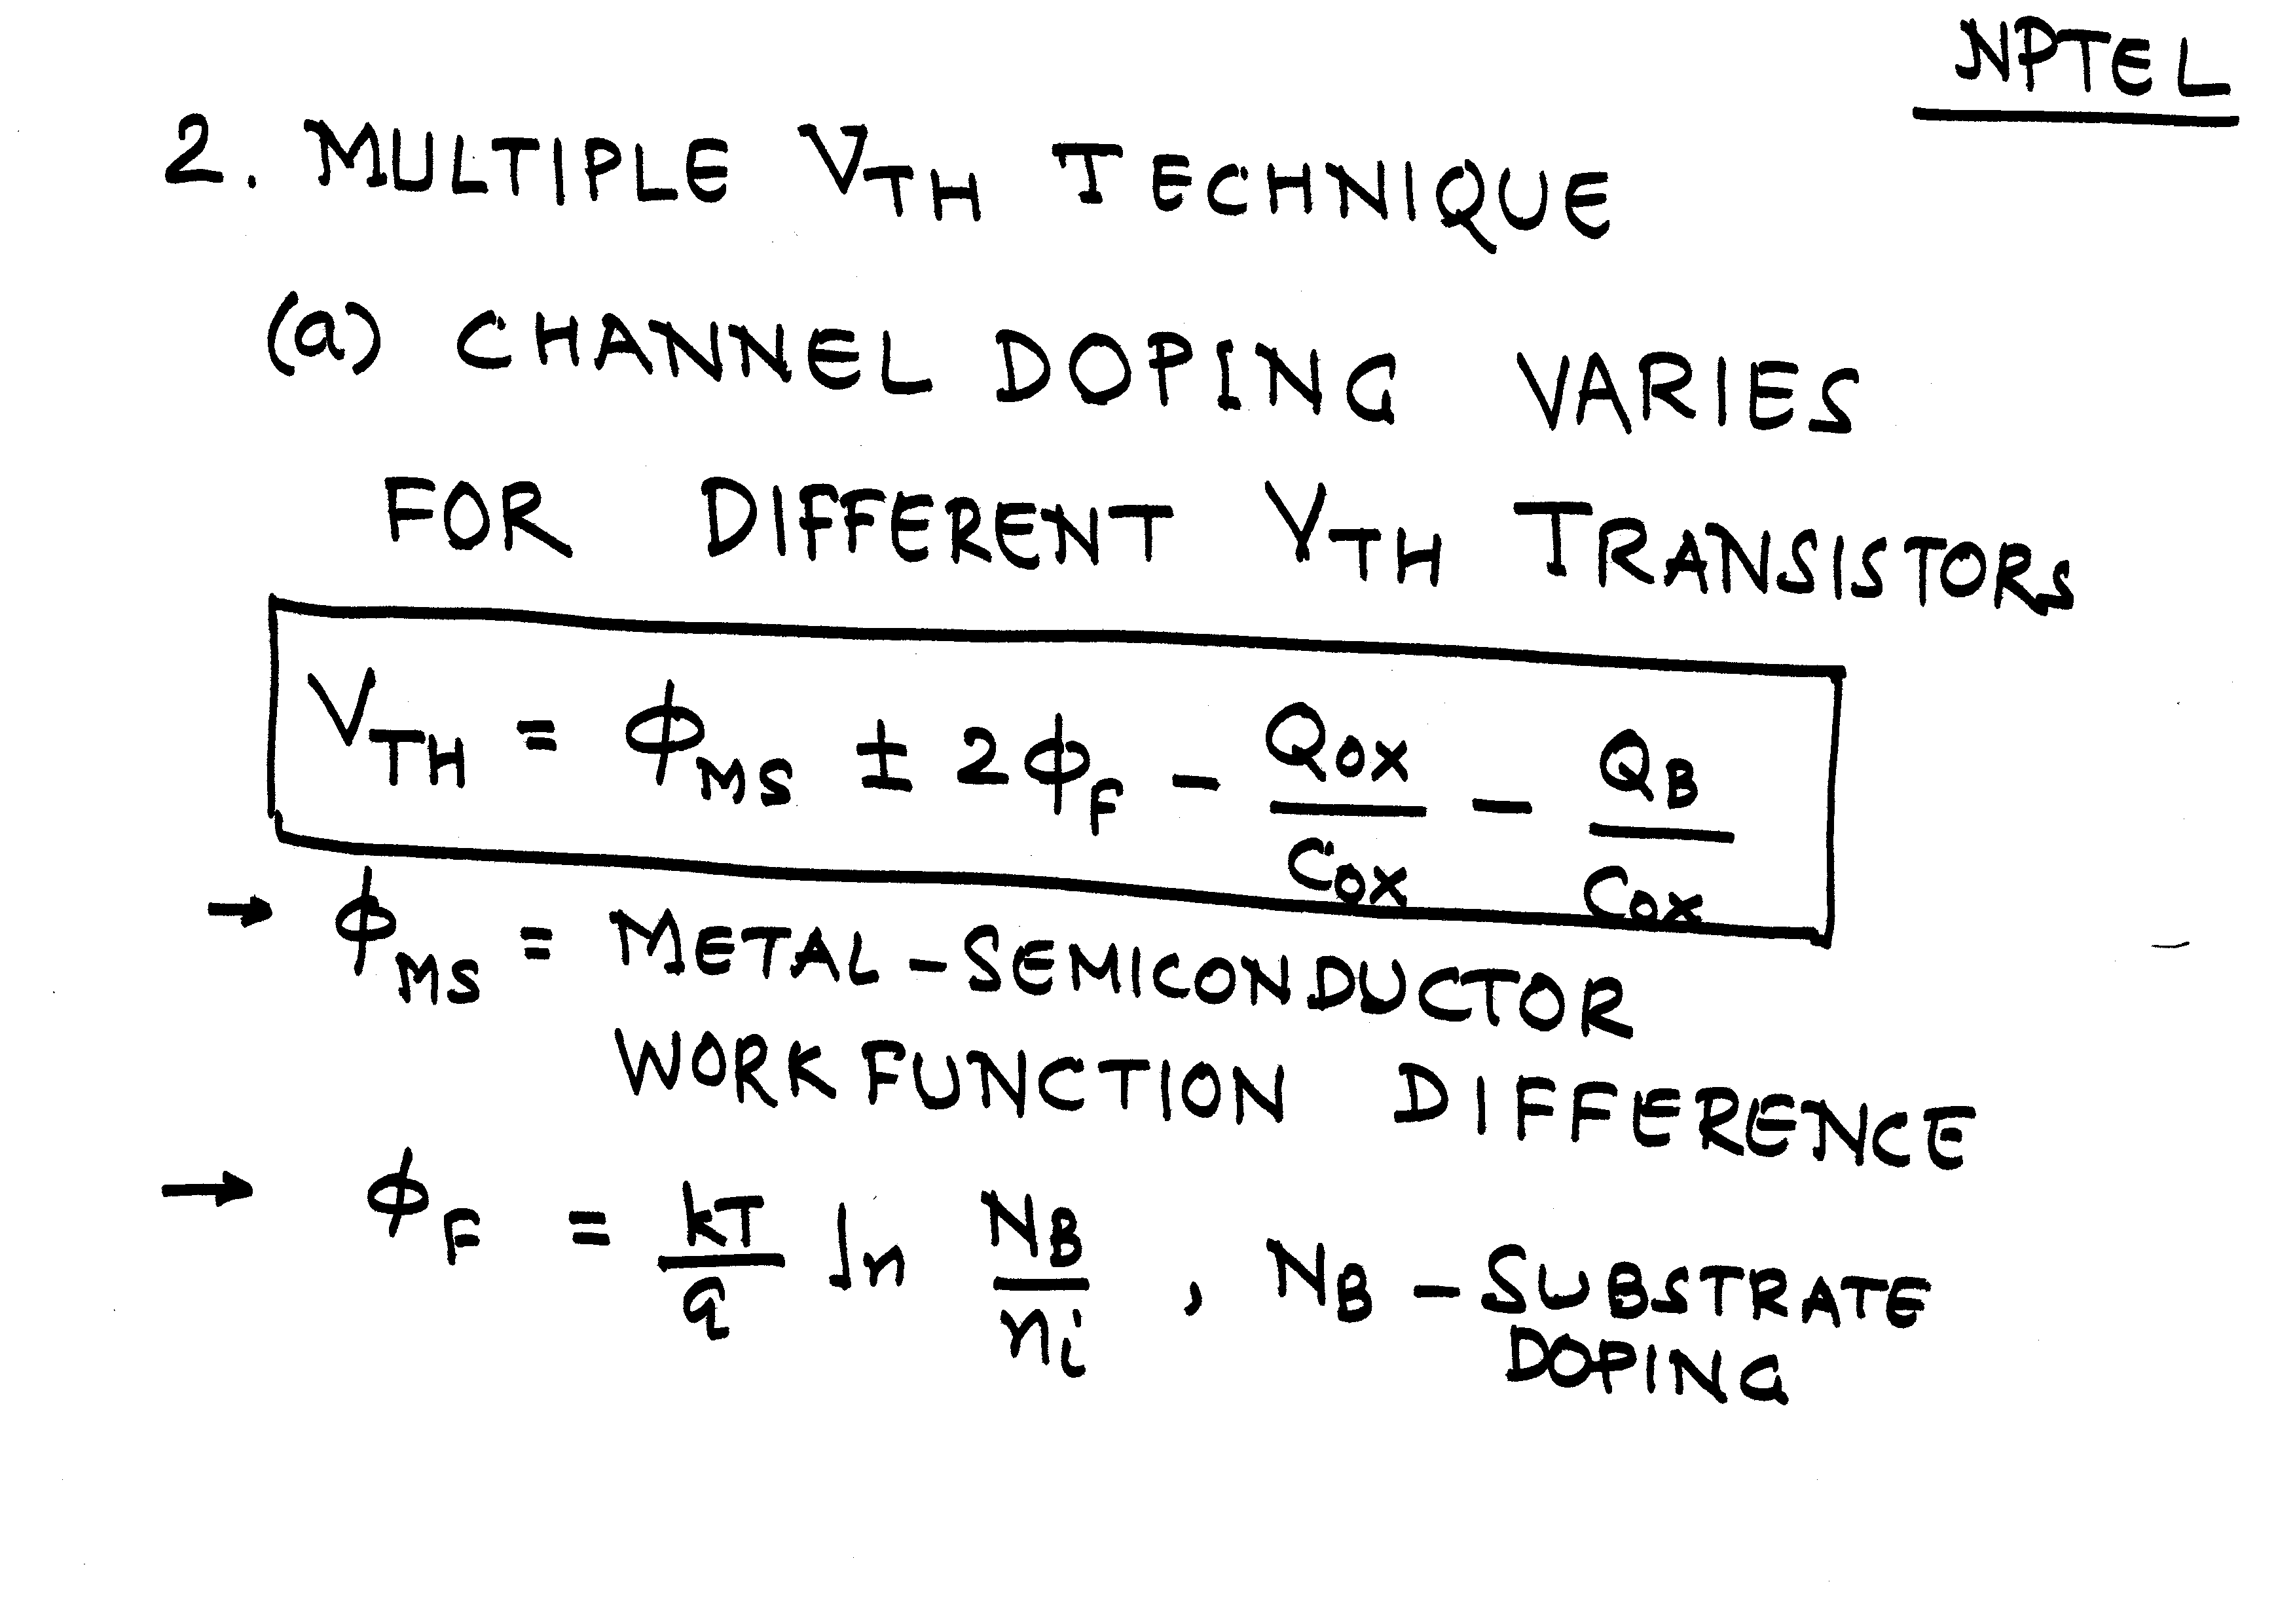 NPTEL
2. MULTIPLE VTH TECHNIQUE
(a) CHANNEL DOPING VARIES
FOR DIFFERENT VTH TRANSISTORS
VTH = ϕMS ± 2ϕF - QOX/COX - QB/COX
→ ϕMS = METAL-SEMICONDUCTOR
WORK FUNCTION DIFFERENCE
→ ϕF = kT/q ln NB/ni , NB - SUBSTRATE
DOPING